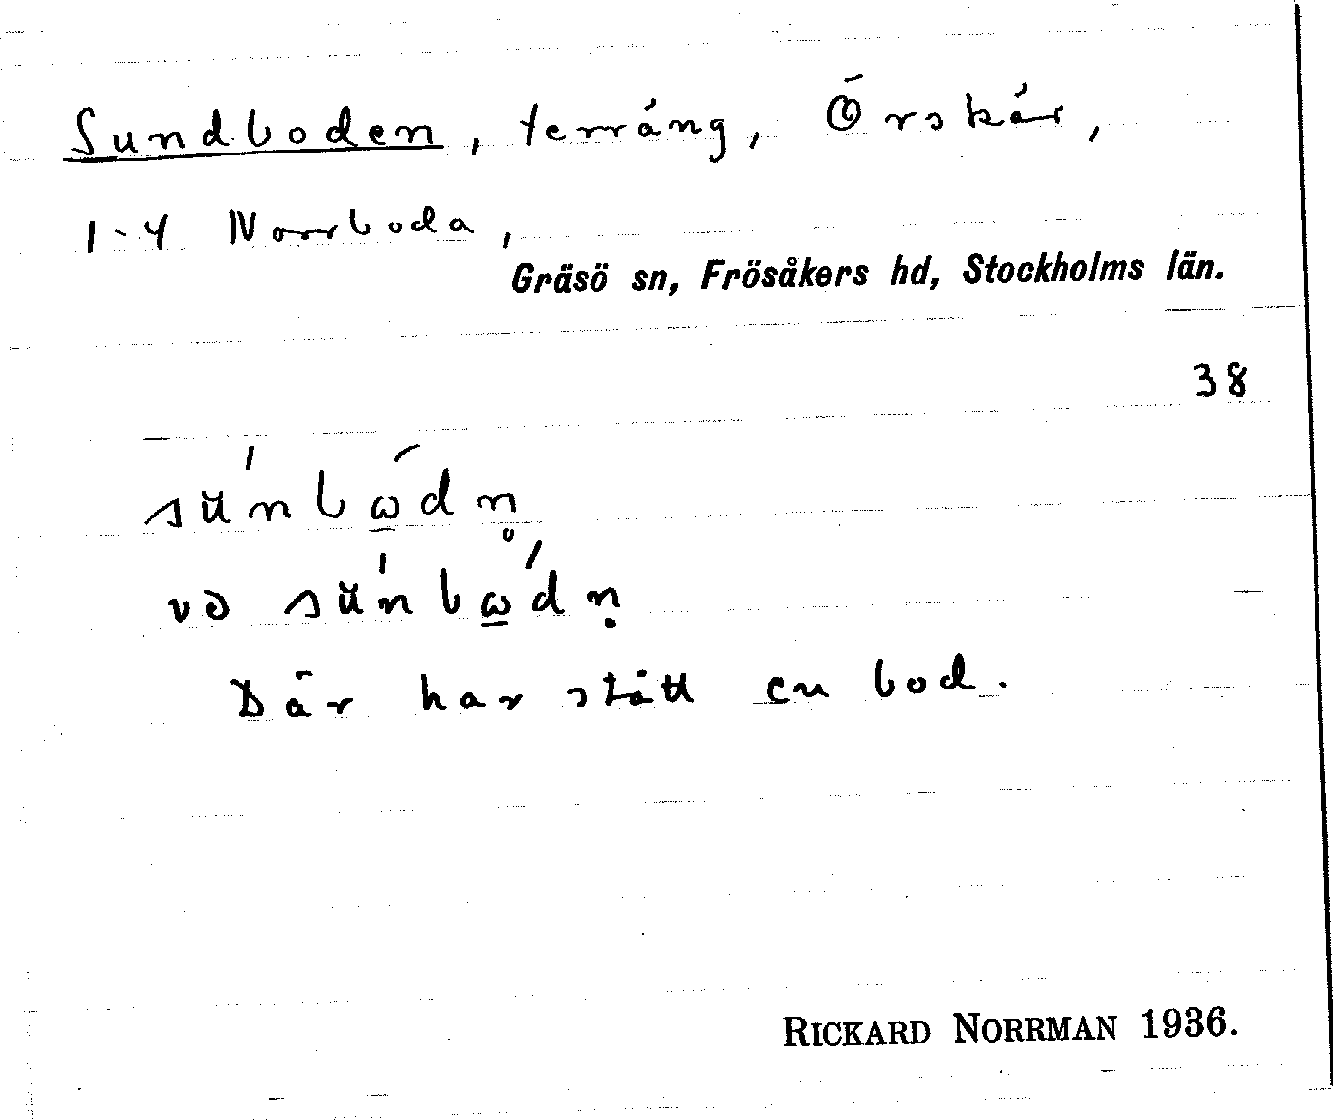 Sundboden, terräng, Örskär,
1-4 Norrboda,
Gräsö sn, Frösåkers hd, Stockholms län.
38
sŭ́nbώ̲dn̥
və sŭ́nbώ̲dṇ
Där har stått en bod.
RICKARD NORRMAN 1936.